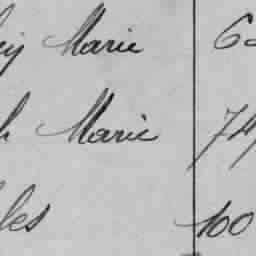 Marie 6
Marie 74
les 100